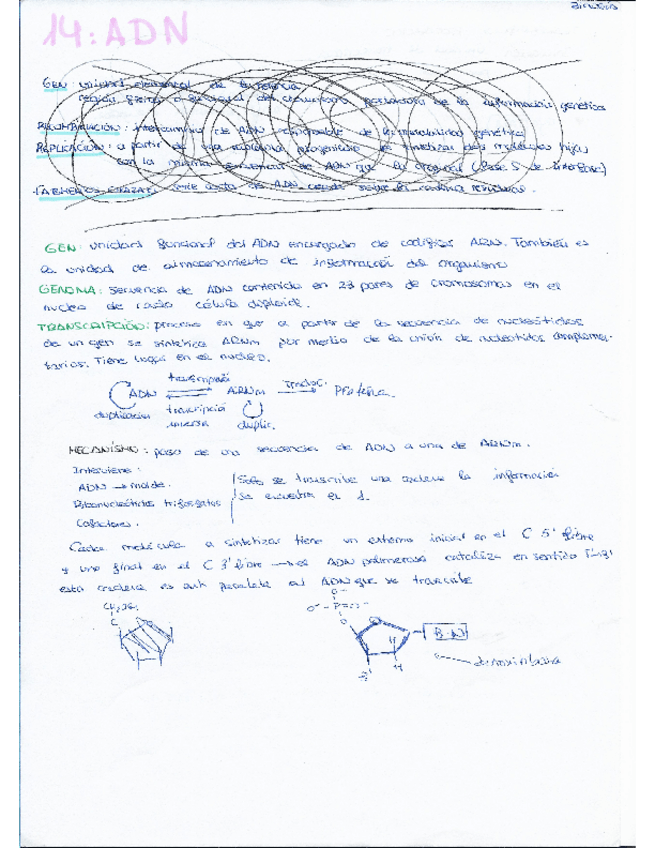 Biología
14: ADN
GEN: unidad elemental de herencia
región física o funcional del cromosoma portadora de la información genética
RECOMBINACIÓN: intercambio de ADN responsable de la variabilidad genética
REPLICACIÓN: a partir de una molécula progenitora se sintetizan dos moléculas hijas
con la misma secuencia de ADN que la original (fase S de interfase)
GEN: unidad funcional del ADN encargado de codificar ARN. También es
la unidad de almacenamiento de información del organismo
GENOMA: secuencia de ADN contenida en 23 pares de cromosomas en el
nucleo de cada célula diploide.
TRANSCRIPCIÓN: proceso en que a partir de la secuencia de nucleótidos
de un gen se sintetiza ARNm por medio de la unión de nucleótidos complemen-
tarios. Tiene lugar en el nucleo.
transcripció
ADN ARNm traducc. Proteína.
duplicación transcripció duplic.
inversa
MECANISMO: paso de una secuencia de ADN a una de ARNm.
Interviene:
ADN → molde. Solo se transcribe una cadena la información
Ribonucleótidos trifosfatos se encuentra el 1.
Cofactores.
Cada molécula a sintetizar tiene un extremo inicial en el C 5' libre
y uno final en el C 3' libre → el ADN polimerasa cataliza en sentido
esta cadena es anti paralela al ADN que se transcribe
C
O⁻
O⁻ - P
O
B.N
H
3' H